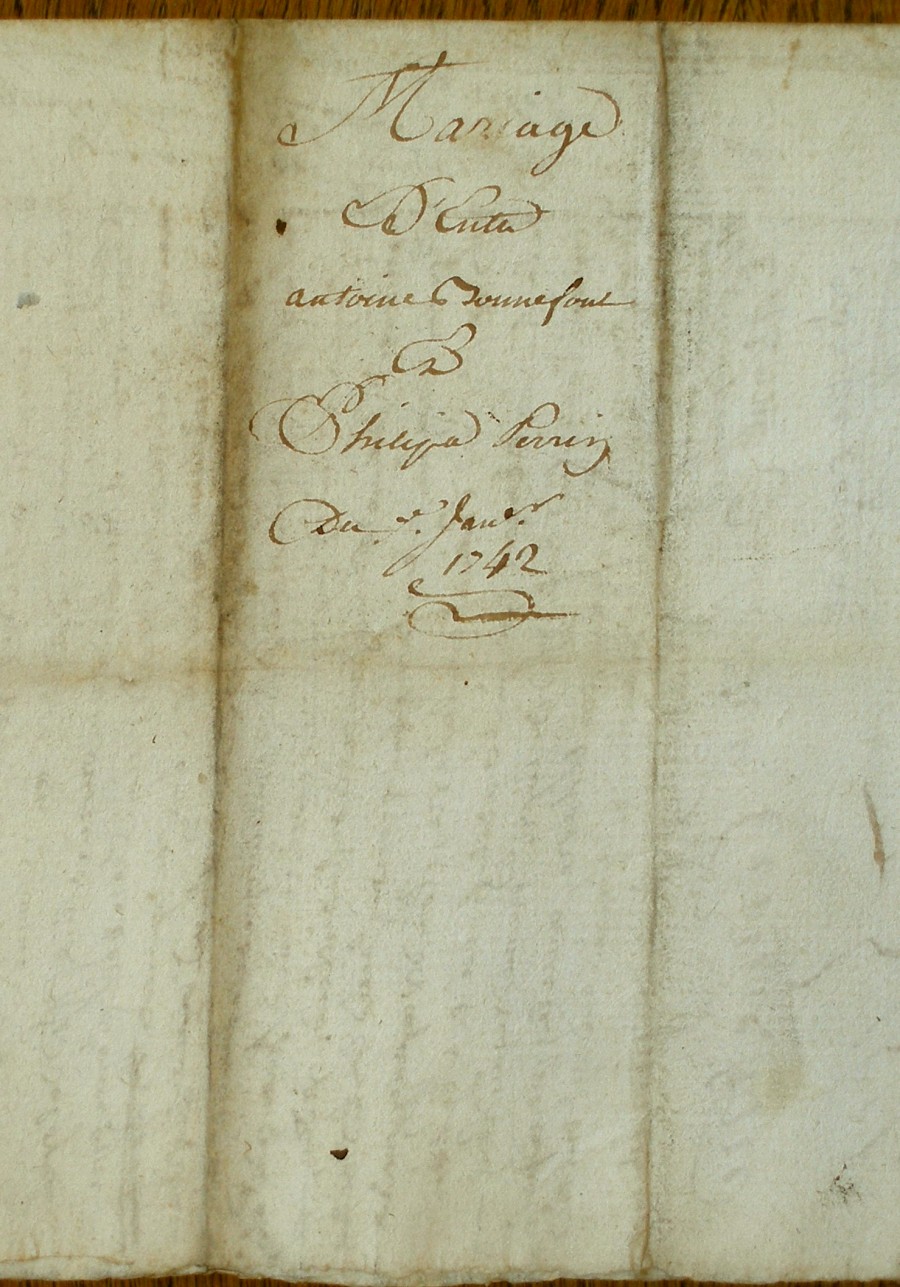 Mariage
D'Entre
antoine Bonnefont
Et
Philipe Perrin
Du Janer.
1742